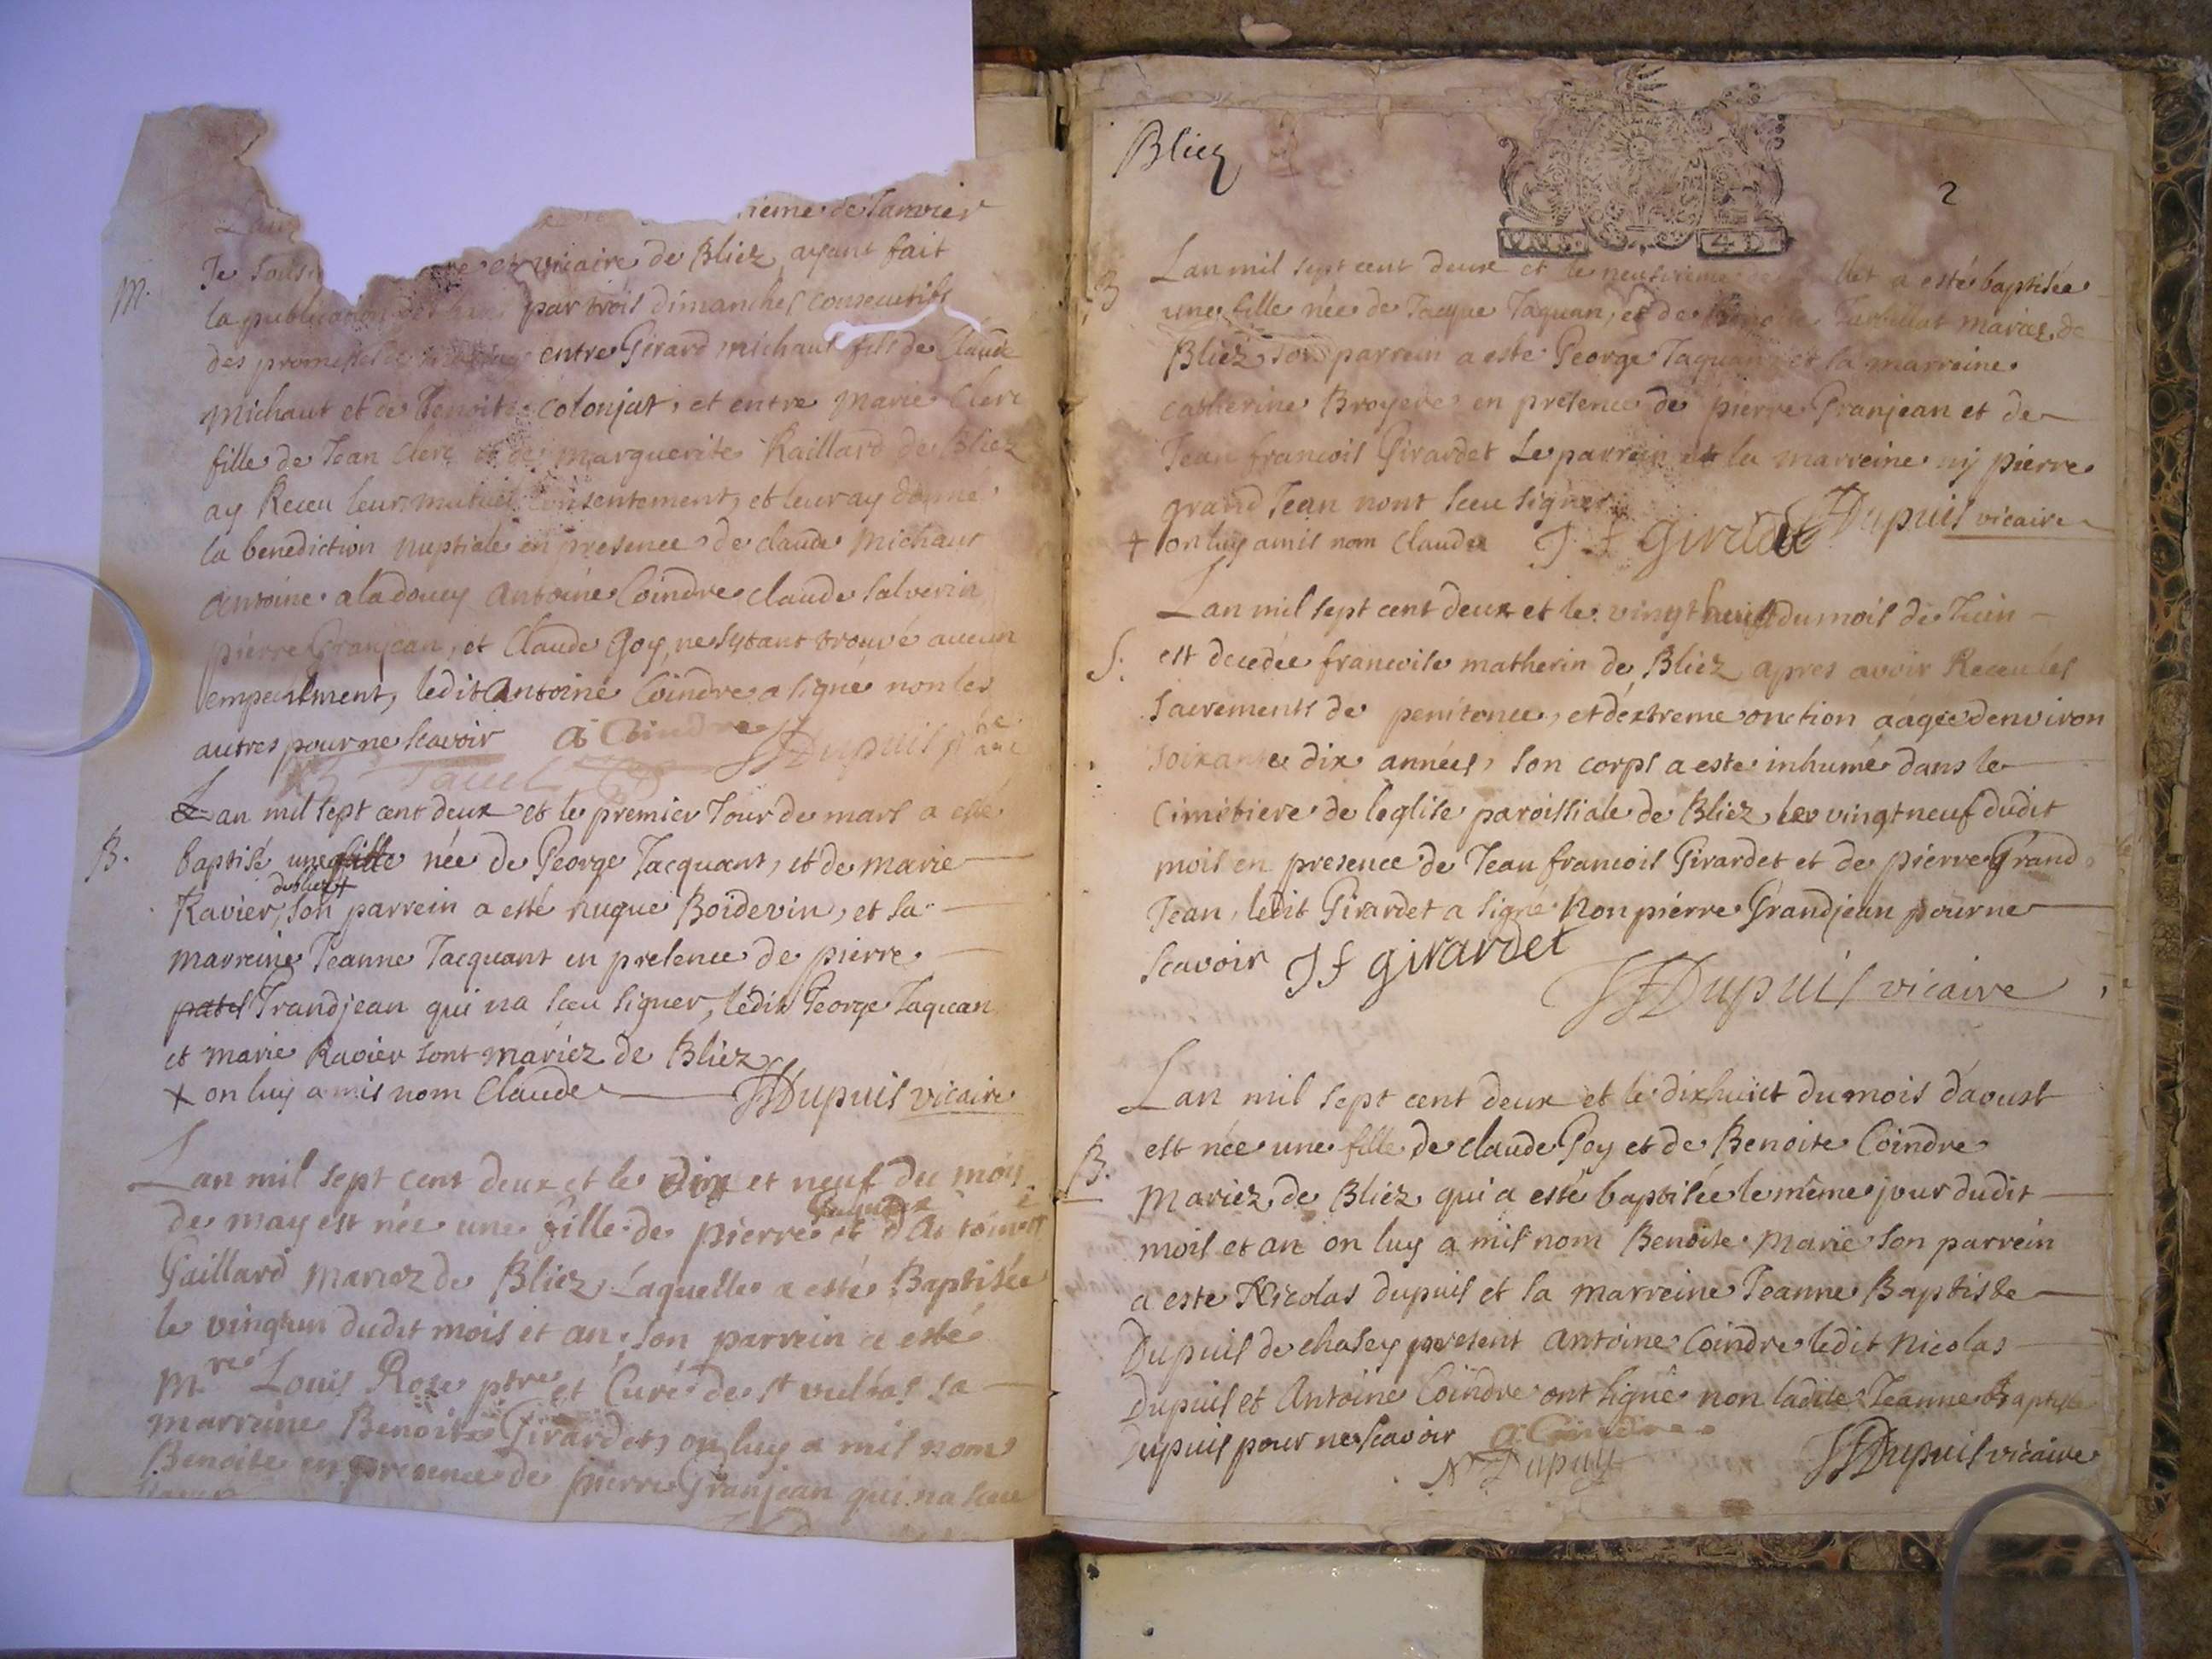 Lan
ieme de Janvier
Je sous et vicaire de Bliez ayant fait
M.
la publication par trois dimanches consecutifs
des promesses entre Girard michaut fils de Claude
michaut et de Benoite Colonjat, et entre Marie Clerc
fille de Jean Clerc et de marguerite Raillard de Bliez
ay Receu leur mutuel consentement, et leur ay donné
la benediction nuptiale en presence de claude Michaut
antoine aladouey Antoine Coindre claude Salverin
pierre Granjean, et Claude Goy, ne sytant trouvé aucun
empechment, ledit Antoine Coindre a signé non les
autres pour ne scavoir a Coindre JJDupuis
Lan mil sept cent deux et le premier Jour de mars a esté
B.
baptisé une fille née de George Jacquant, et de marie
de bliez +
Ravier, son parrein a esté hugue Boidevin, et sa
marreine Jeanne Jacquant en presence de pierre
Grandjean qui na sceu signer, ledit George Jaquan
et marie Ravier sont mariez de Bliez
+ on luy a mis nom Claude JJDupuis vicaire
Lan mil sept cent deux et le dix et neuf du mois
de may est née une fille de pierre et d'Antoinett
Gaillard mariez de Bliez, Laquelle a esté Baptisée
le vingt un dudit mois et an, son parrein a esté
Mre Louis Roze ptre et Curé de st vulbas sa
marreine Benoite Girardet, on luy a mis nom
Benoite en presence de pierre Granjean qui na sceu
signer
Bliez
2
4 D
Lan mil sept cent deux et le neufvieme juillet a esté baptisée
B
une fille née de Jacque Jaquan, et de Benoite Turbillat mariez de
Bliez son parrein a esté George Jaquan et sa marreine
catherine Broyere en presence de pierre Granjean et de
Jean francois Girardet Le parrein et la marreine ny pierre
grand Jean nont sceu signer
JJDupuis vicaire
+ on luy a mis nom Claudee J f Girardet
Lan mil sept cent deux et le vingt huit du mois de Juin
S.
est decedée francoise matherin de Bliez apres avoir Receu les
sacrements de penitence, et dextreme onction aagée denviron
soixante dix années, son corps a esté inhumé dans le
Cimitiere de leglise paroissiale de Bliez le vingt neuf dudit
mois en presence de Jean francois Girardet et de pierre Grand
Jean, ledit Girardet a signé Non pierre Grandjean pour ne
scavoir J f girardet
JJDupuis vicaire
Lan mil sept cent deux et le dixhuict du mois d'aoust
est née une fille de claude Goy et de Benoite Coindre
B.
Mariez de Bliez qui a esté baptisée le même jour dudit
mois et an on luy a mis nom Benoite Marie son parrein
a este Nicolas dupuis et sa marreine Jeanne Baptiste
Dupuis de chasey present Antoine Coindre ledit Nicolas
Dupuis et Antoine Coindre ont signé non ladite Jeanne Baptiste
Dupuis pour ne scavoir a Coindre
N Dupuy JJDupuis vicaire